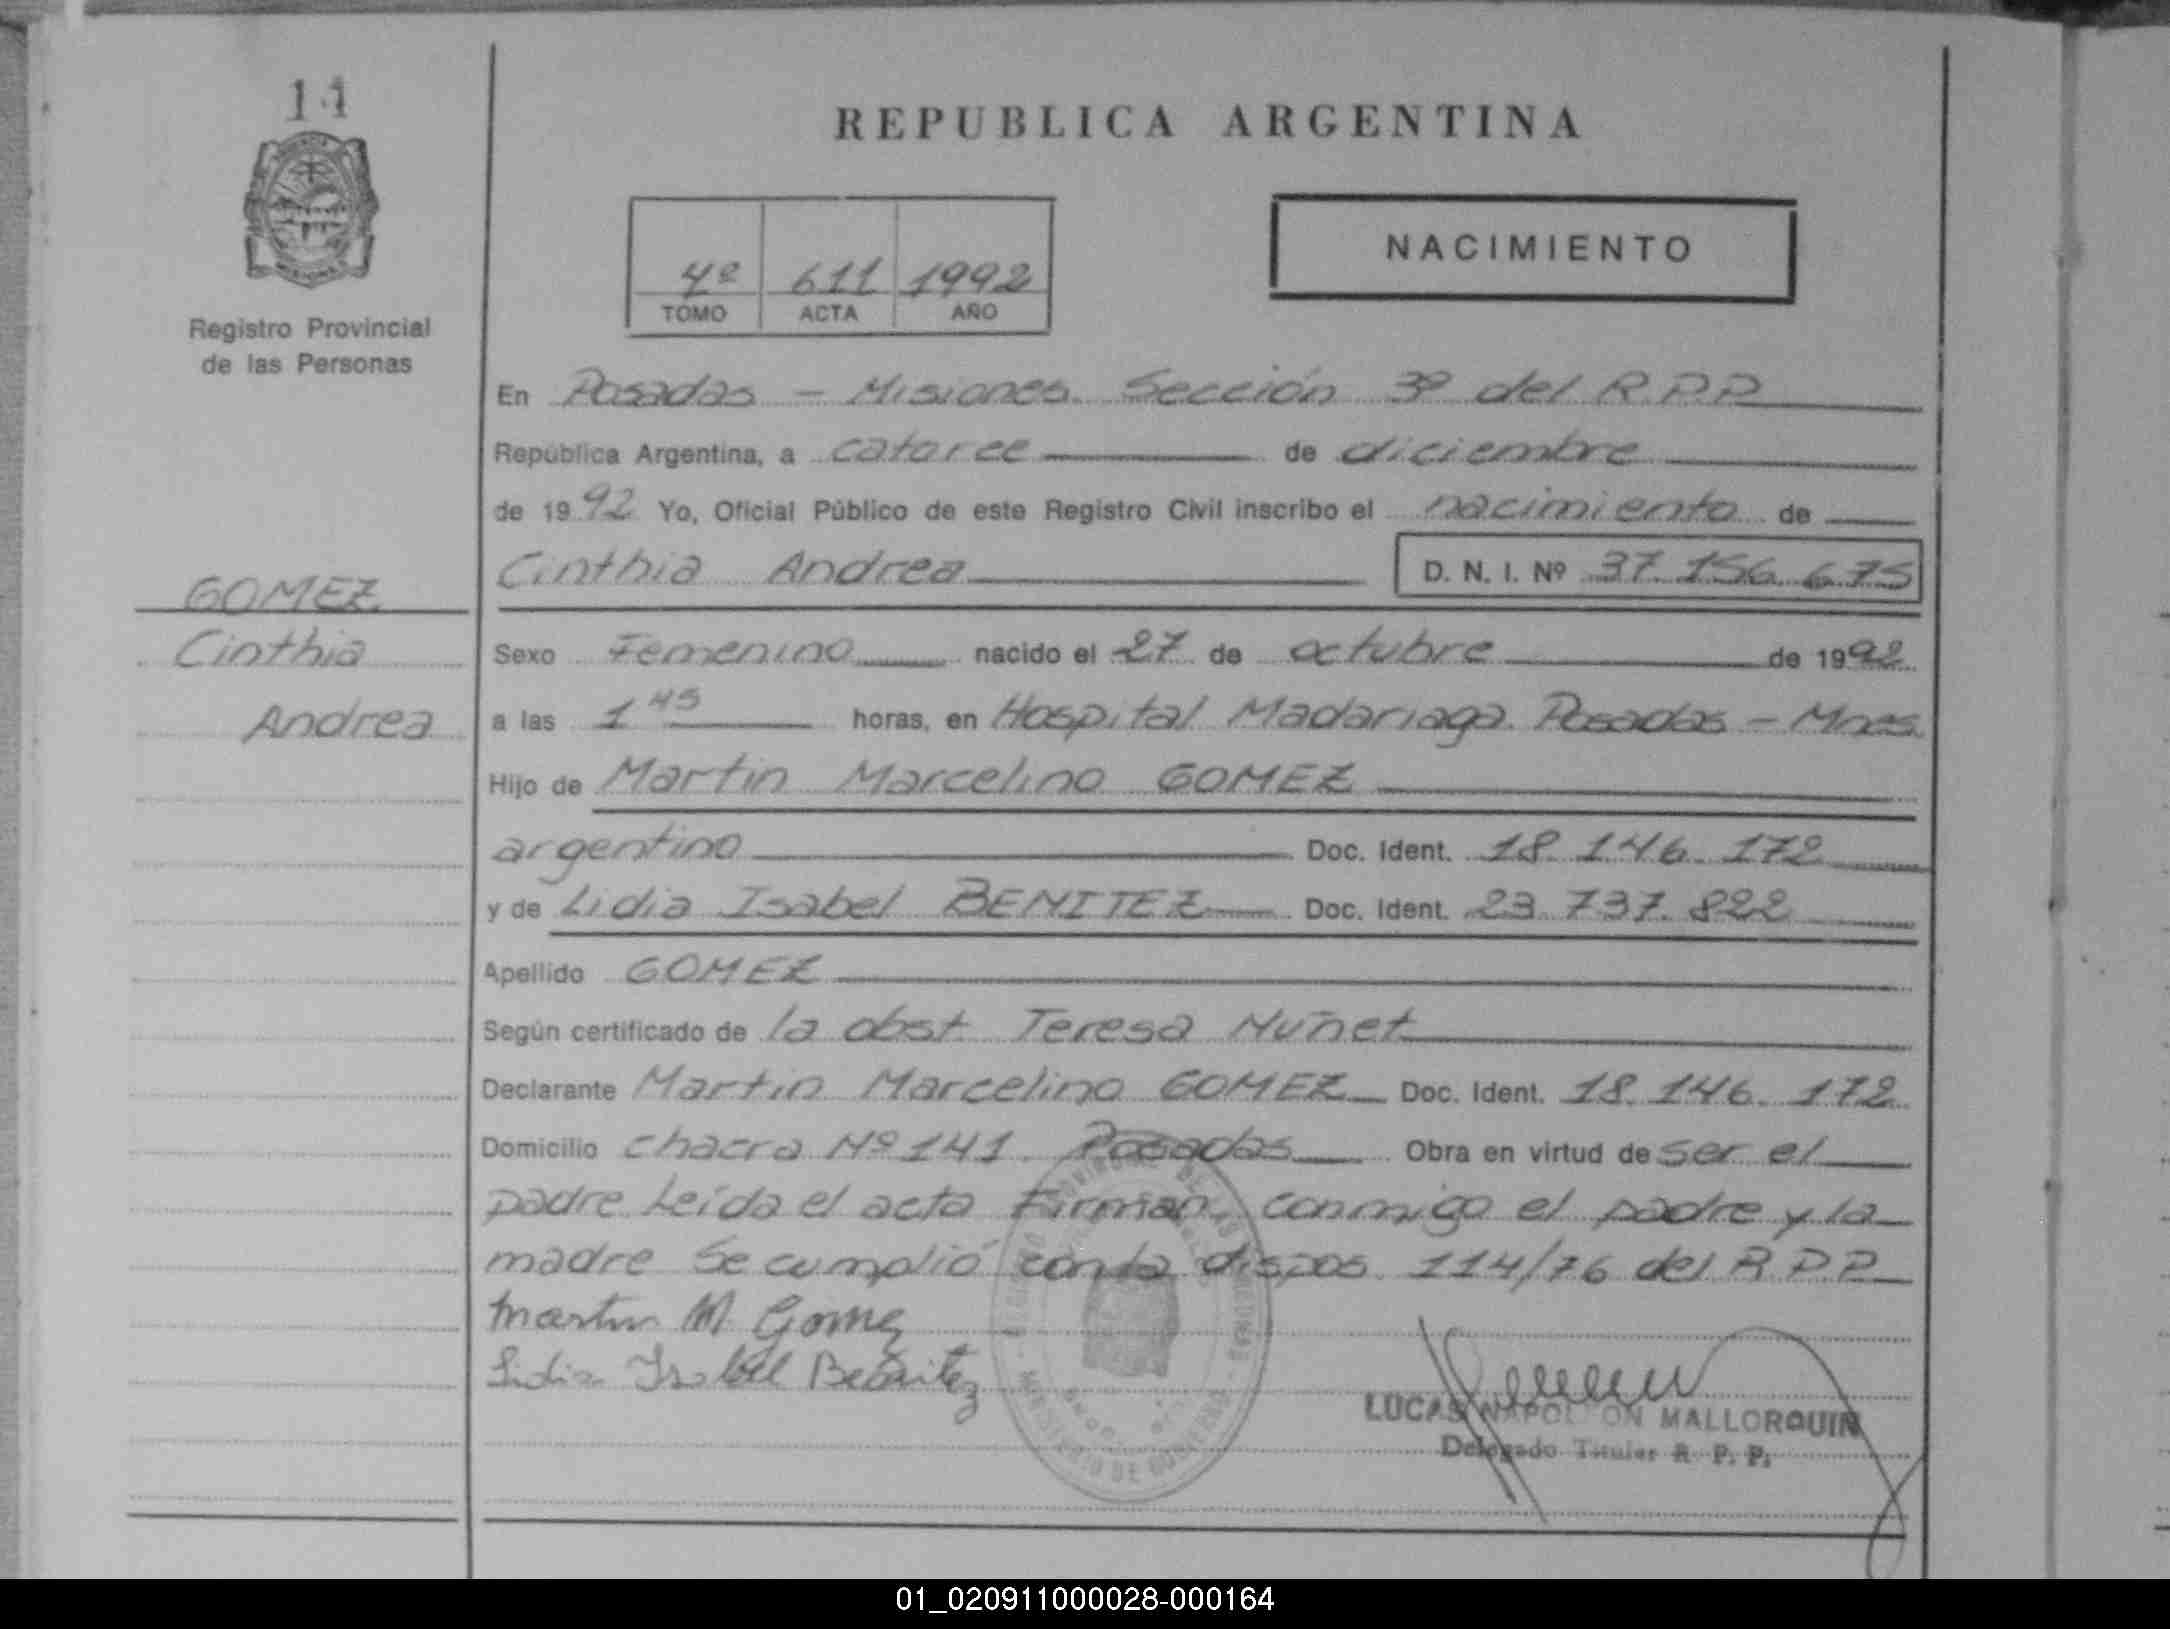 14
REPUBLICA ARGENTINA
NACIMIENTO
4º 611 1992
TOMO ACTA AÑO
Registro Provincial
de las Personas
En Posadas – Misiones. Sección 3º del R.P.P
República Argentina, a catorce de diciembre
de 1992 Yo, Oficial Público de este Registro Civil inscribo el nacimiento de
Cinthia Andrea D. N. I. Nº 37.156.675
GOMEZ
Cinthia
Andrea
Sexo Femenino nacido el 27 de octubre de 1992
a las 1 45 horas, en Hospital Madariaga. Posadas – Mnes.
Hijo de Martin Marcelino GOMEZ
argentino Doc. Ident. 18.146.172
y de Lidia Isabel BENITEZ Doc. Ident. 23.737.822
Apellido GOMEZ
Según certificado de la obst. Teresa Nuñet
Declarante Martin Marcelino GOMEZ Doc. Ident. 18.146.172
Domicilio chacra Nº 141. Posadas Obra en virtud de ser el
padre. Leída el acta Firman conmigo el padre y la
madre Se cumplió con la dispos. 114/76 del R.P.P
Martin M. Gomez
Lidia Isabel Benitez
MINISTERIO DE GOBIERNO
LUCAS NAPOLEON MALLORQUIN
Delegado Titular R. P. P.
01_020911000028-000164